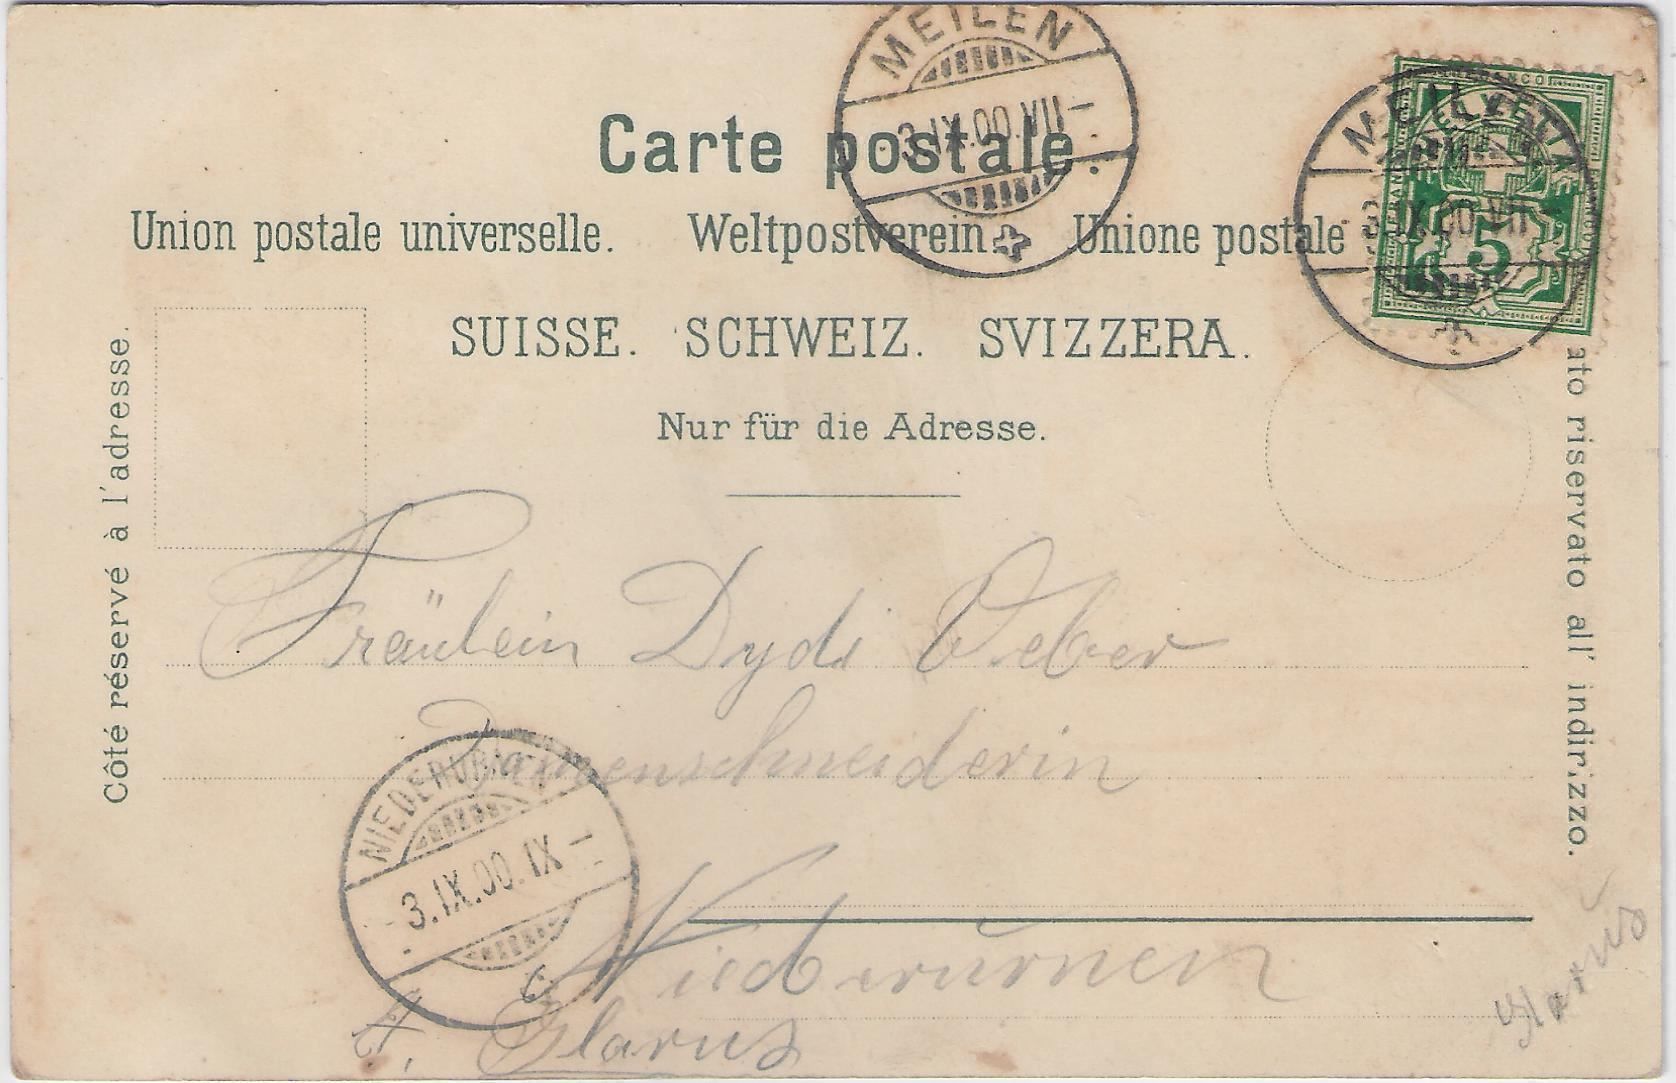 MEILEN
-3.IX.00.VII-
Carte postale.
Union postale universelle. Weltpostverein. Unione postale
FRANCO
HELVETIA
5
MEILEN
-3.IX.00.VII-
SUISSE. SCHWEIZ. SVIZZERA.
Nur für die Adresse.
Côté réservé à l'adresse.
ato riservato all' indirizzo.
Fräulein Dydi Weber
Damenschneiderin
NIEDERURNEN
-3.IX.00.IX-
Niederurnen
Kt. Glarus
Glarus